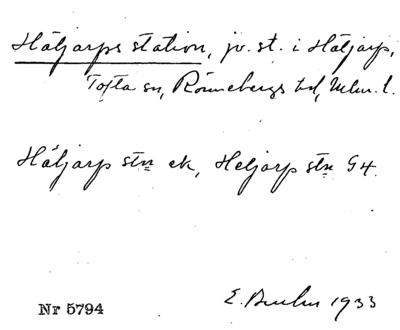 Häljarps station, jv. st. i Häljarp,
Tofta sn, Rönnebergs hd, Mlm. l.
Häljarp stn ek, Heljarp stn G4.
E. 1933
Nr 5794